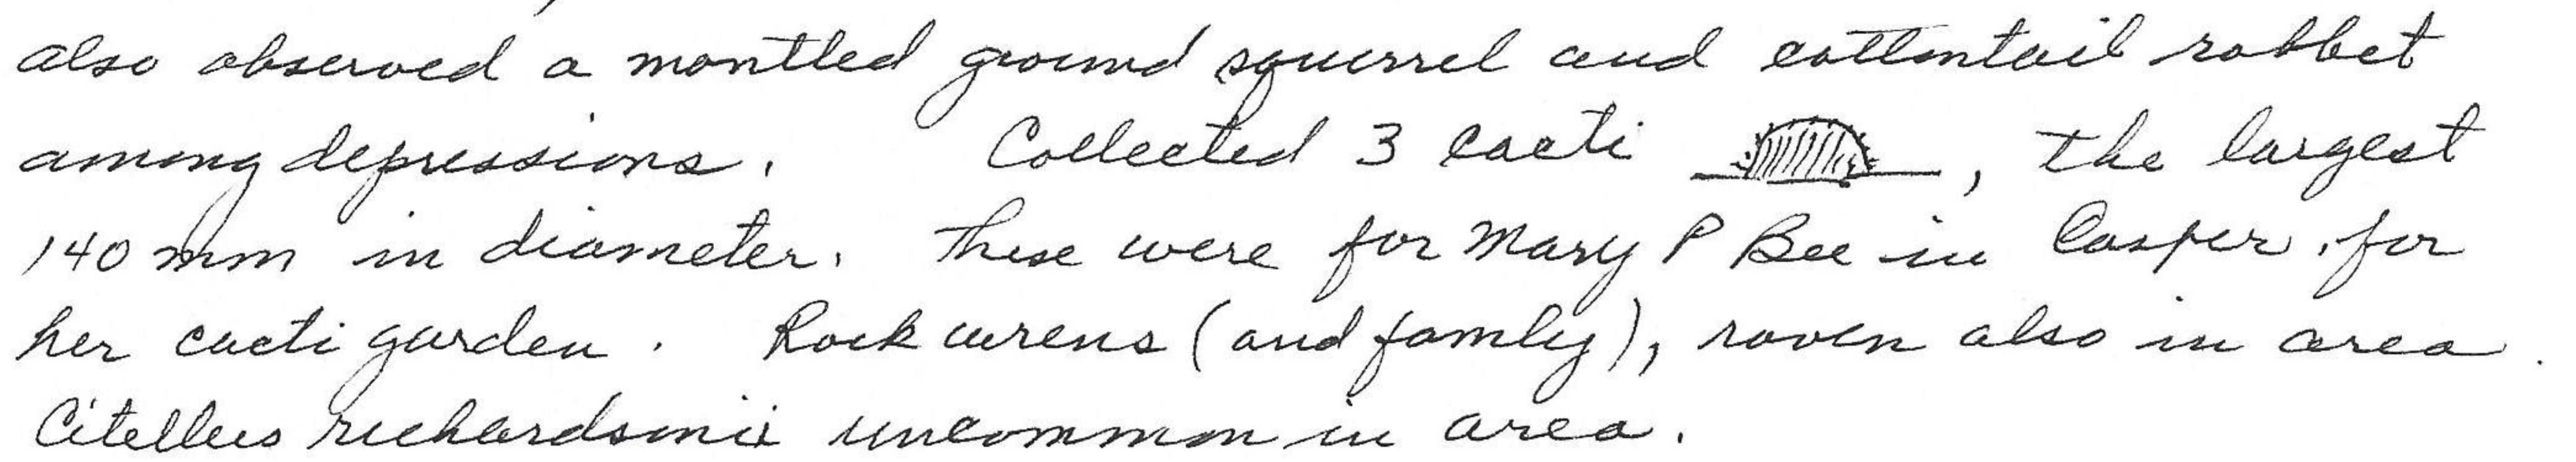 also observed a mantled ground squirrel and cottontail rabbet
among depressions. Collected 3 cacti , the largest
140 mm in diameter. These were for Mary P Bee in Casper, for
her cacti garden. Rock wrens (and famly), raven also in area.
Citellus richardsonii uncommon in area.